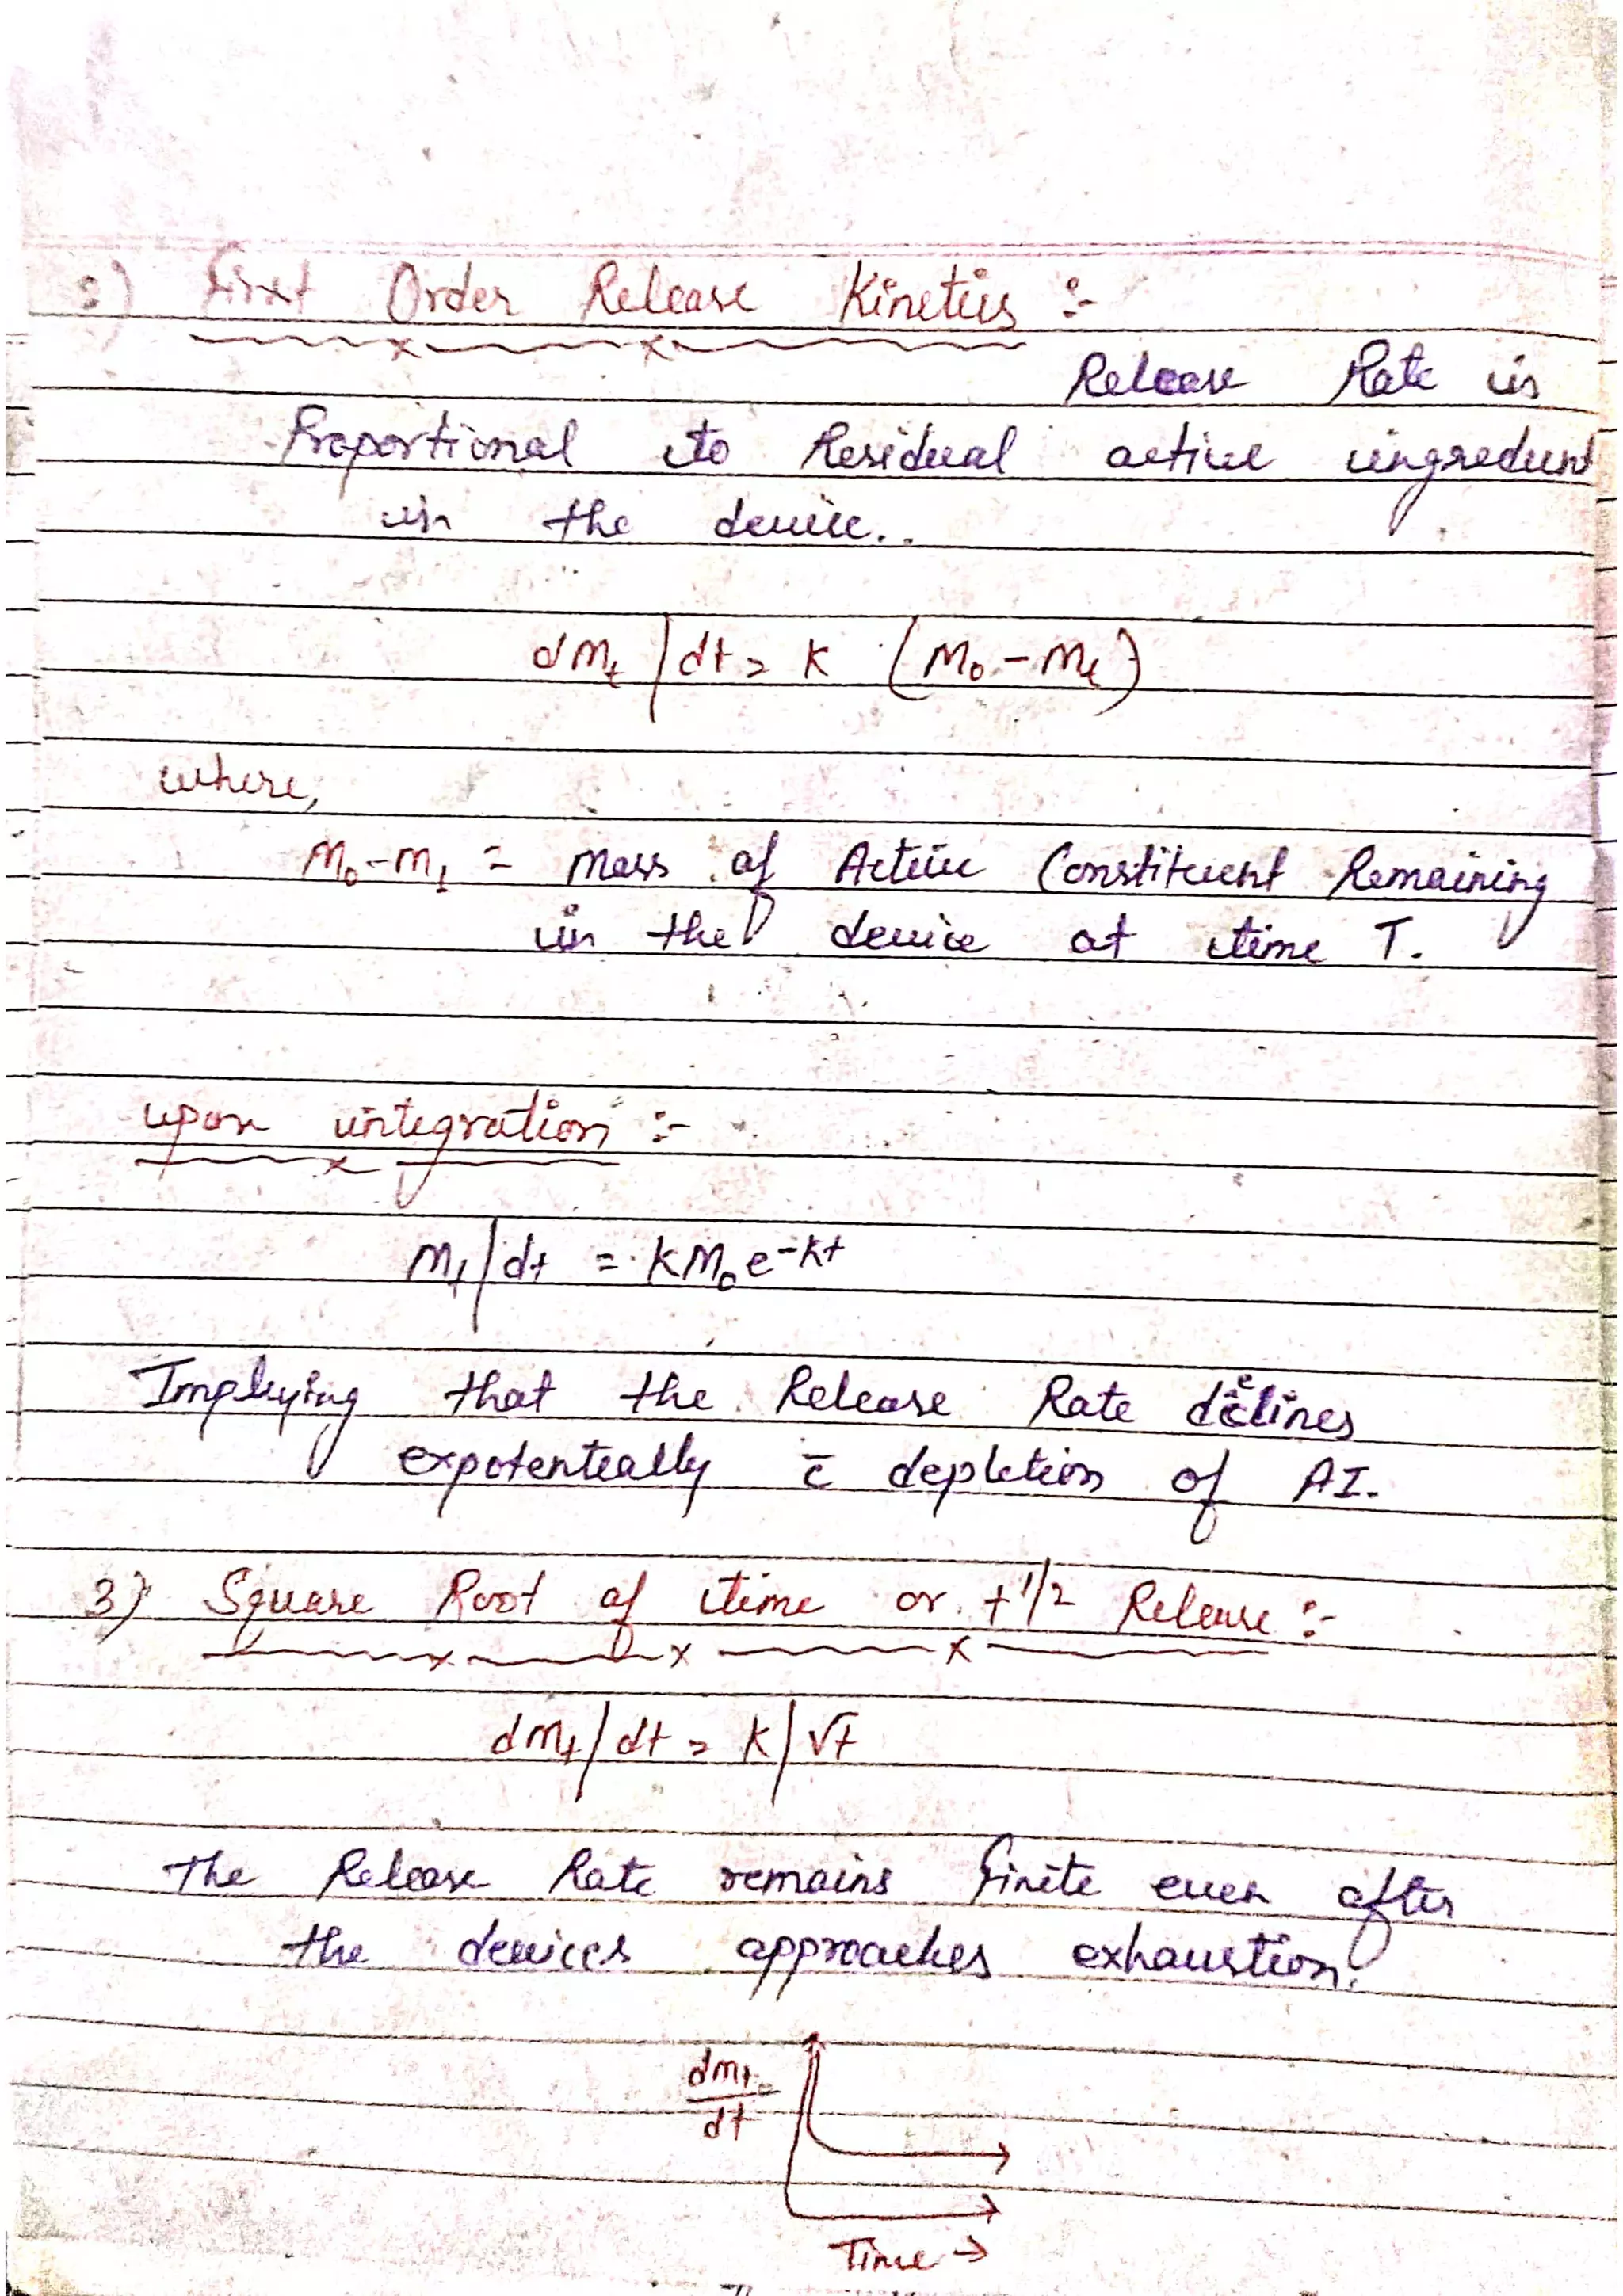 :) First Order Release Kinetics :-
Release Rate is
Proportional to Residual active ingredient
in the device..
dMt/dt = K (M₀-Mt)
where,
M₀-Mt = Mass of Active Constituent Remaining
in the device at time T.
upon integration :-
Mt/dt = KM₀e-Kt
Implying that the Release Rate declines
expotentially c̄ depletion of AI.
3) Square Root of time or t1/2 Release :-
dMt/dt = K/√t
The Release Rate remains finite even after
the devices approaches exhaustion.
dMt
dt
Time →